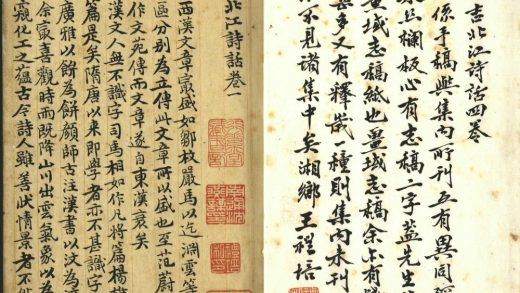 北江詩話四卷
係手稿與集內所刊互有異同
絲欄板心有志稿二字蓋先生
畺域志稿紙也畺域志稿余亦有
多又有釋歲一種則集內未刊
不見諸集中矣湘鄉王禮培
北江詩話卷一
西漢文章最盛如鄒枚嚴馬以迄淵雲等
區分別為立傳此文章所以盛也至范蔚
作文苑傳而文章遂自東漢衰矣
漢文人無不識字司馬相如作凡將篇楊
篇是矣隋唐以來即學者亦不甚識字
廣雅以餅為餅顏師古注漢書以汶為
余最喜觀時雨既降山川出雲氣象以為
窺化工之蘊古今詩人雖善狀情景者不